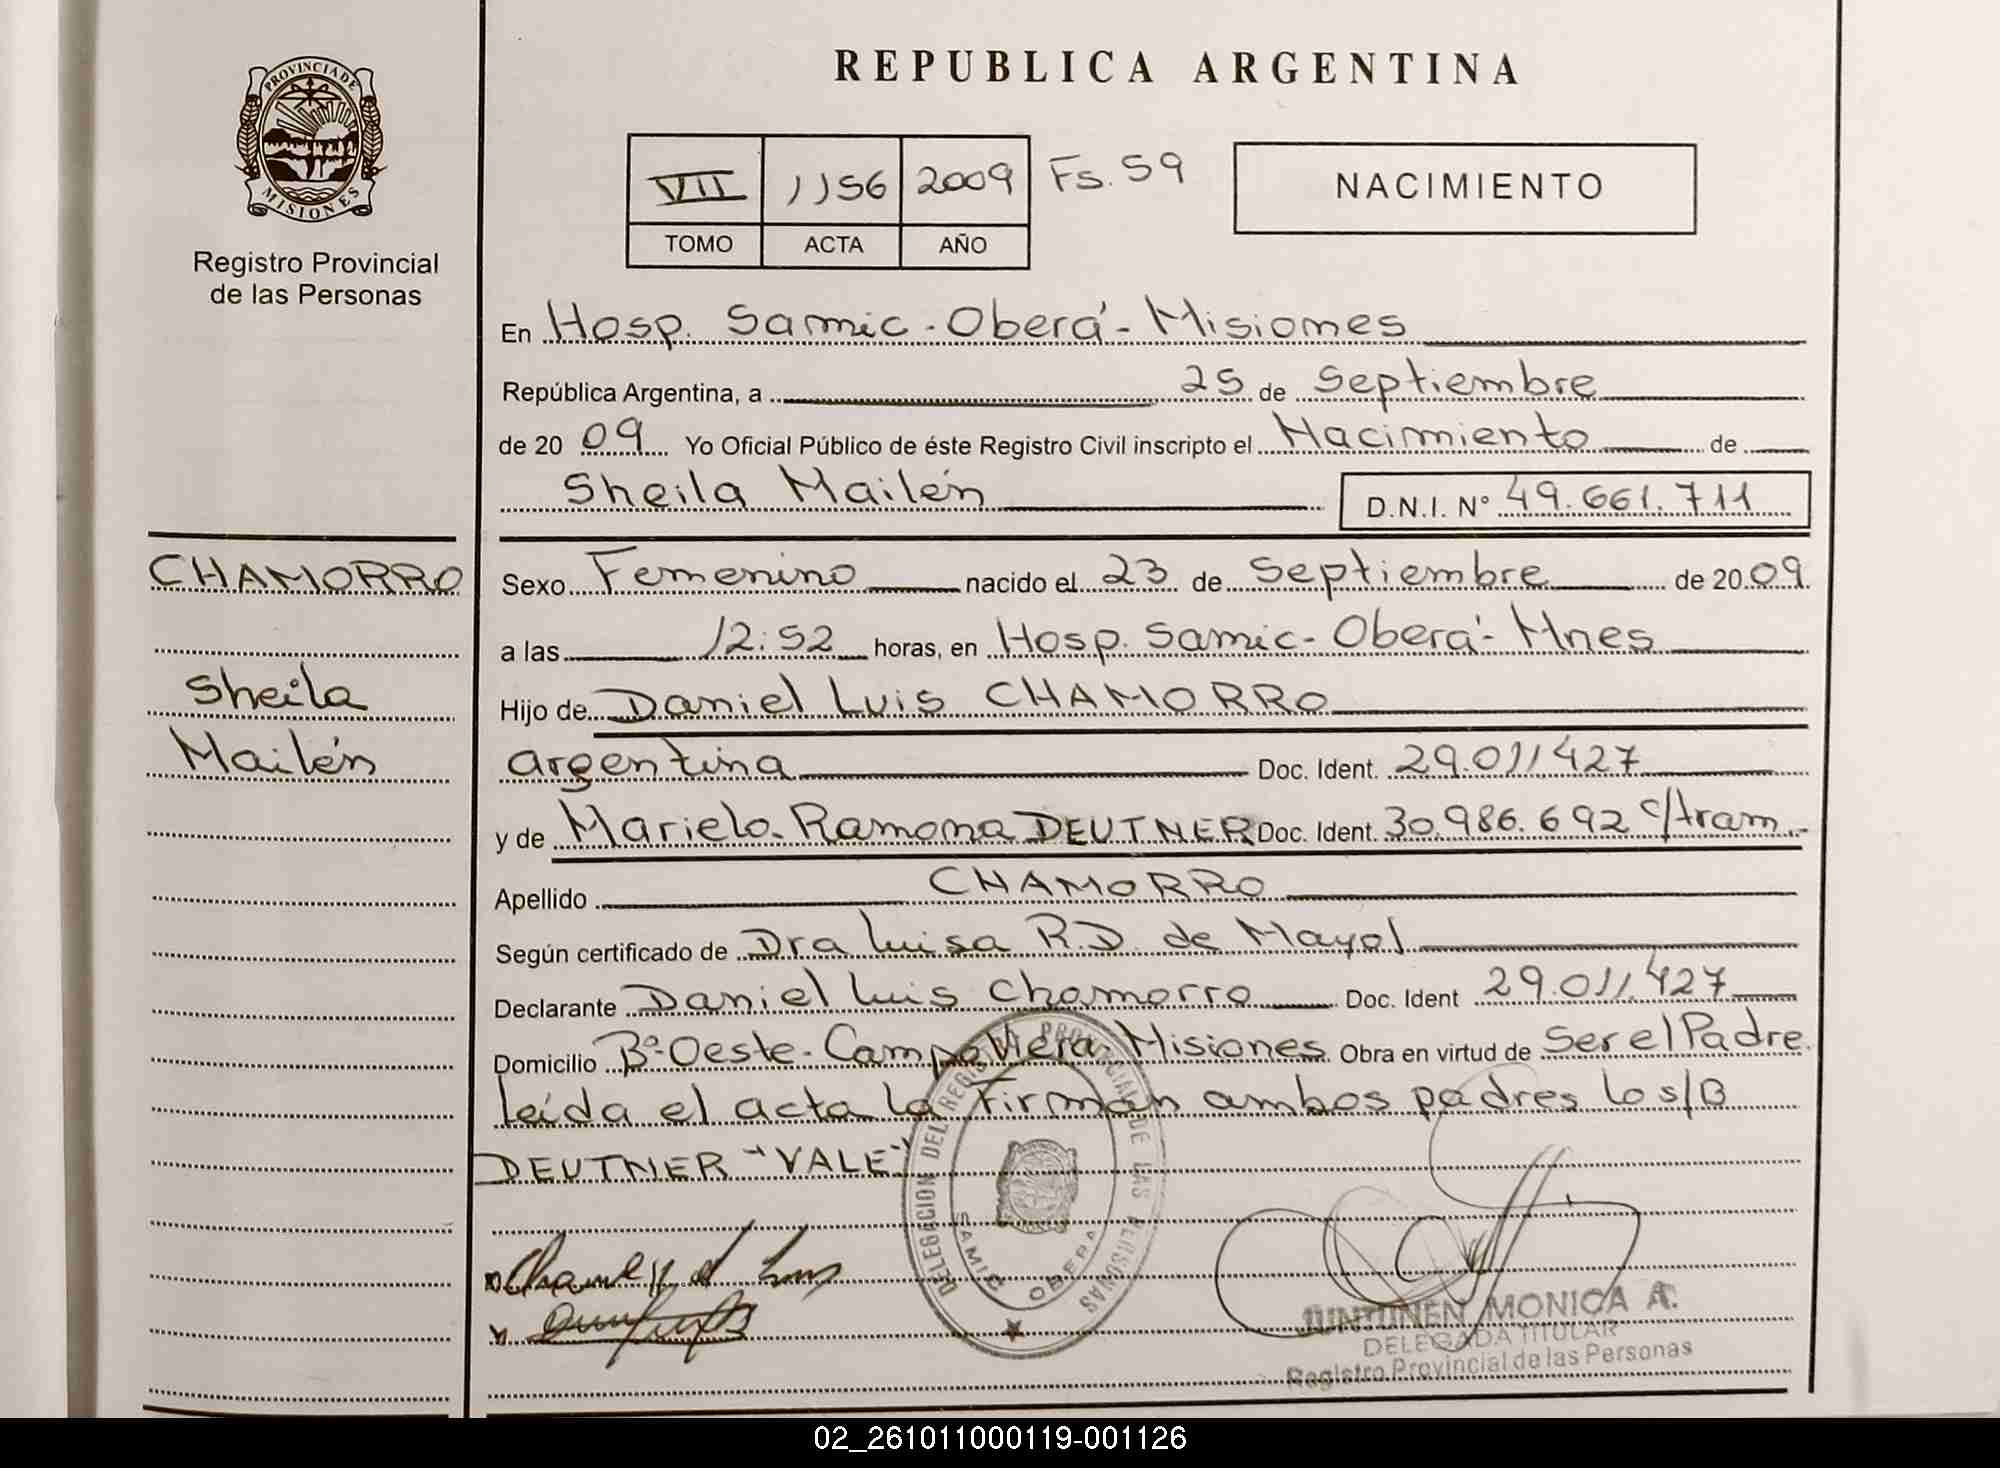 REPUBLICA ARGENTINA
PROVINCIA DE
MISIONES
Registro Provincial
de las Personas
VII 1156 2009 Fs. 59
TOMO ACTA AÑO
NACIMIENTO
En Hosp. Samic - Oberá - Misiones
República Argentina, a 25 de Septiembre
de 20 09 Yo Oficial Público de éste Registro Civil inscripto el Nacimiento de
Sheila Mailén D.N.I. Nº 49.661.711
CHAMORRO
Sheila
Mailén
Sexo Femenino nacido el 23 de Septiembre de 20 09
a las 12:52 horas, en Hosp. Samic - Oberá - Mnes
Hijo de Daniel Luis CHAMORRO
argentina Doc. Ident. 29.011427
y de Mariela Ramona DEUTNER Doc. Ident. 30.986.692 c/tram.
Apellido CHAMORRO
Según certificado de Dra Luisa R.D. de Mayol
Declarante Daniel Luis Chamorro Doc. Ident 29.011.427
Domicilio Bº Oeste - Campo Viera Misiones Obra en virtud de Ser el Padre
leída el acta la Firman ambos padres lo s/B
DEUTNER "VALE"
DELEGACION DEL REGISTRO PROVINCIAL DE LAS PERSONAS
SAMIC OBERA
JUNTUNEN MONICA A.
DELEGADA TITULAR
Registro Provincial de las Personas
02_261011000119-001126